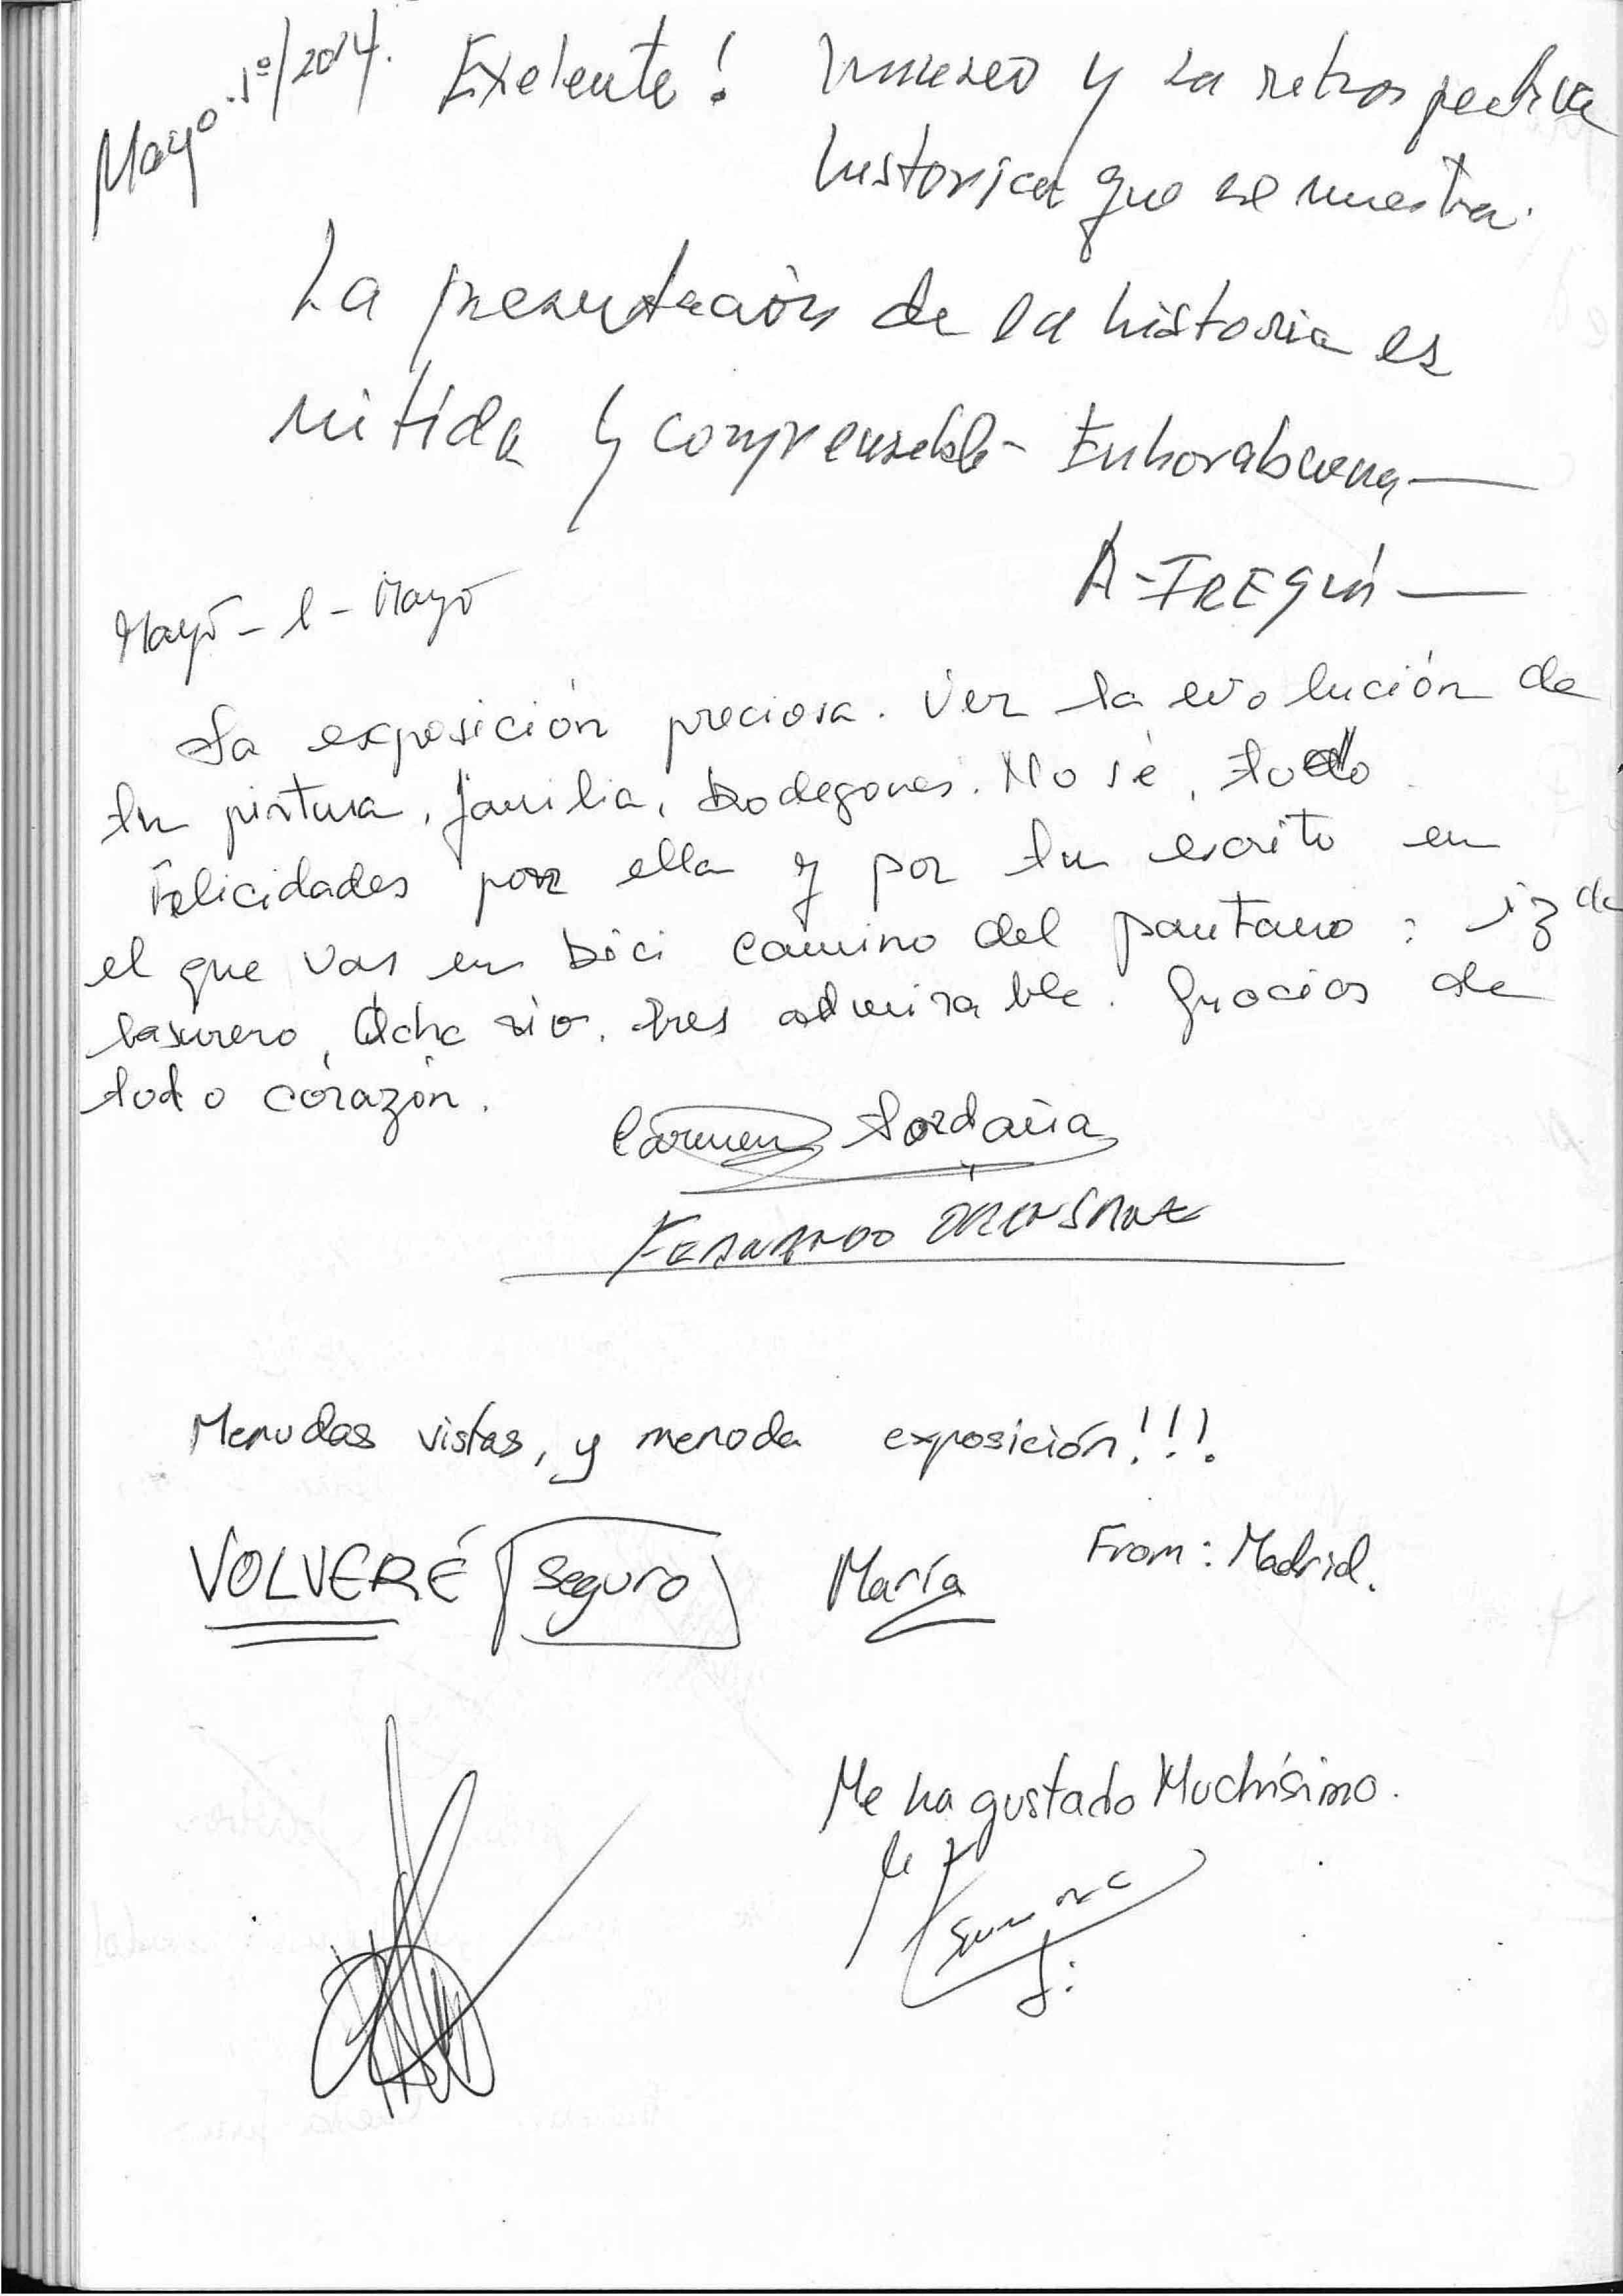 Mayo.1º/2014. Exelente! museo y su retrospectiva
historica que se muestra.
La presentación de la historia es
nitida y comprensible - Enhorabuena
Mayo - 1 - Mayo
La exposición preciosa. Ver la evolución de
tu pintura, familia, bodegones. No sé, todo
Felicidades por ella y por tu escrito en
el que vas en bici camino del pantano: izda
basurero, dcha rio. tres admirable. Gracias de
todo corazón.
Carmen
Fernando
Menudas vistas, y menuda exposición!!!.
VOLVERÉ seguro María From: Madrid.
Me ha gustado Muchísimo.